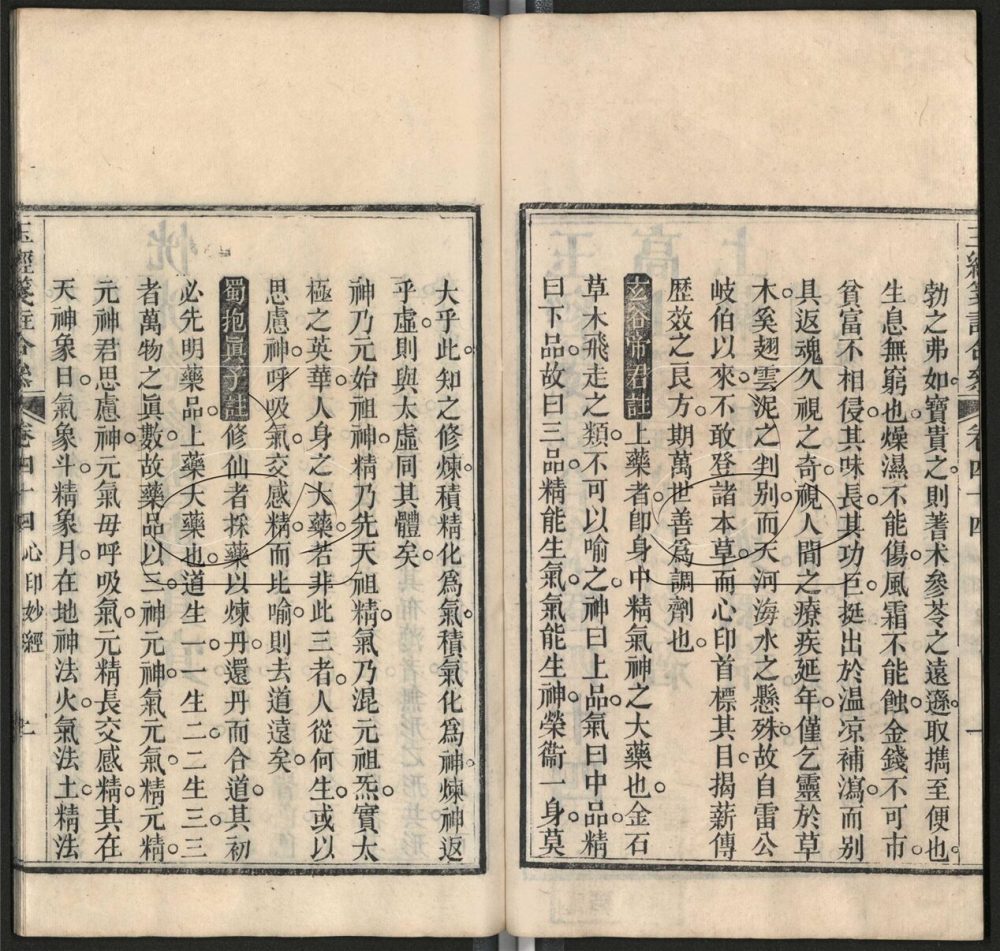 勃之弗如寶貴之則蓍术參苓之遠遜取擕至便也
生息無窮也燥濕不能傷風霜不能蝕金錢不可市
貧富不相侵其味長其功巨挺出於温凉補瀉而别
具返魂久視之奇視人間之療疾延年僅乞靈於草
木奚翅雲泥之判别而天河海水之懸殊故自雷公
岐伯以來不敢登諸本草而心印首標其目揭薪傳
歷效之良方期萬世善爲調劑也
玄谷帝君註上藥者卽身中精氣神之大藥也金石
草木飛走之類不可以喻之神曰上品氣曰中品精
曰下品故曰三品精能生氣氣能生神榮衞一身莫
大乎此知之修煉積精化爲氣積氣化爲神煉神返
乎虛則與太虛同其體矣
神乃元始祖神精乃先天祖精氣乃混元祖炁實太
極之英華人身之大藥若非此三者人從何生或以
思慮神呼吸氣交感精而比喻則去道遠矣
蜀抱眞子註修仙者採藥以煉丹還丹而合道其初
必先明藥品上藥大藥也道生一一生二二生三三
者萬物之眞數故藥品以三神元神氣元氣精元精
元神君思慮神元氣毋呼吸氣元精長交感精其在
天神象日氣象斗精象月在地神法火氣法土精法
玉經箋註合纂 卷四十四 心印妙經